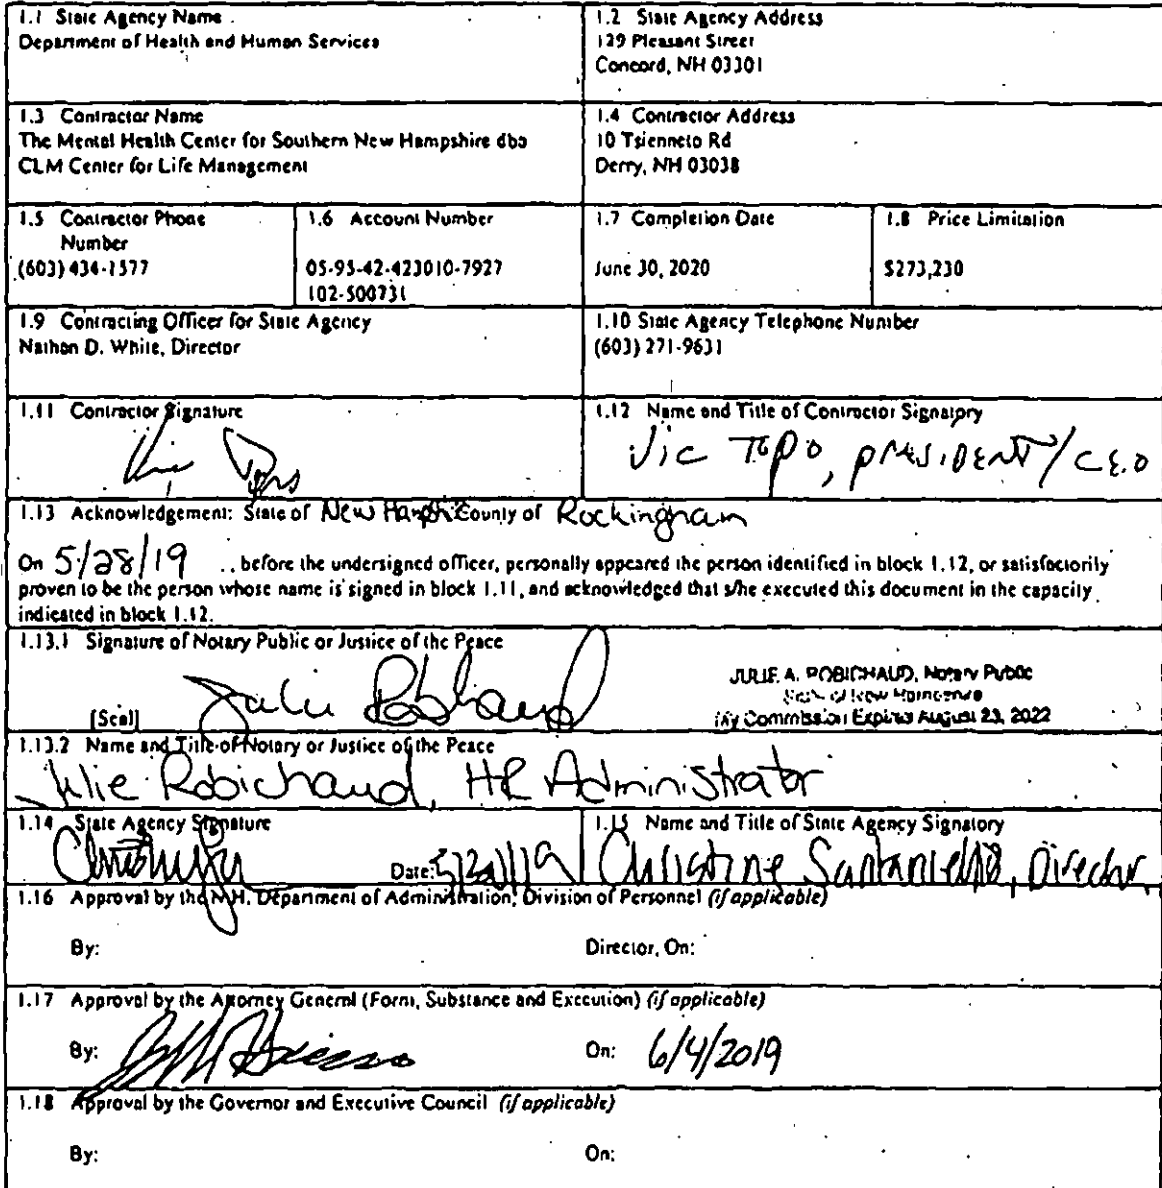 1.1 State Agency Name
Department of Health and Human Services
1.2 State Agency Address
129 Pleasant Street
Concord, NH 03301
1.3 Contractor Name
The Mental Health Center for Southern New Hampshire dba
CLM Center for Life Management
1.4 Contractor Address
10 Tsienneto Rd
Derry, NH 03038
1.5 Contractor Phone
Number
(603) 434-1577
1.6 Account Number
05-95-42-423010-7927
102-500731
1.7 Completion Date
June 30, 2020
1.8 Price Limitation
$273,230
1.9 Contracting Officer for State Agency
Nathan D. White, Director
1.10 State Agency Telephone Number
(603) 271-9631
1.11 Contractor Signature
1.12 Name and Title of Contractor Signatory
Vic Topo, PRESIDENT/CEO
1.13 Acknowledgement: State of New Hampsh County of Rockingham
On 5/28/19 , before the undersigned officer, personally appeared the person identified in block 1.12, or satisfactorily
proven to be the person whose name is signed in block 1.11, and acknowledged that s/he executed this document in the capacity
indicated in block 1.12.
1.13.1 Signature of Notary Public or Justice of the Peace
[Seal] Julie Robichaud
JULIE A. ROBICHAUD, Notary Public
State of New Hampshire
My Commission Expires August 23, 2022
1.13.2 Name and Title of Notary or Justice of the Peace
Julie Robichaud, HR Administrator
1.14 State Agency Signature
Date:
1.15 Name and Title of State Agency Signatory
Christine Santaniello, Director
1.16 Approval by the N.H. Department of Administration, Division of Personnel (if applicable)
By: Director, On:
1.17 Approval by the Attorney General (Form, Substance and Execution) (if applicable)
By: On: 6/4/2019
1.18 Approval by the Governor and Executive Council (if applicable)
By: On: